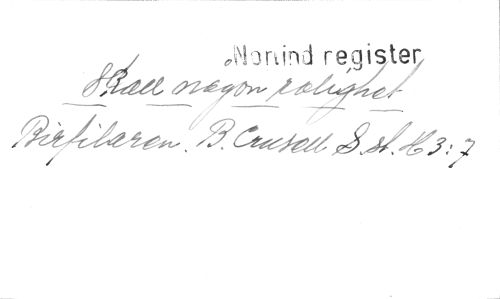 Norlind register
Skall någon rolighet
Birfilaren. B. Crusell S. st. H 3:7